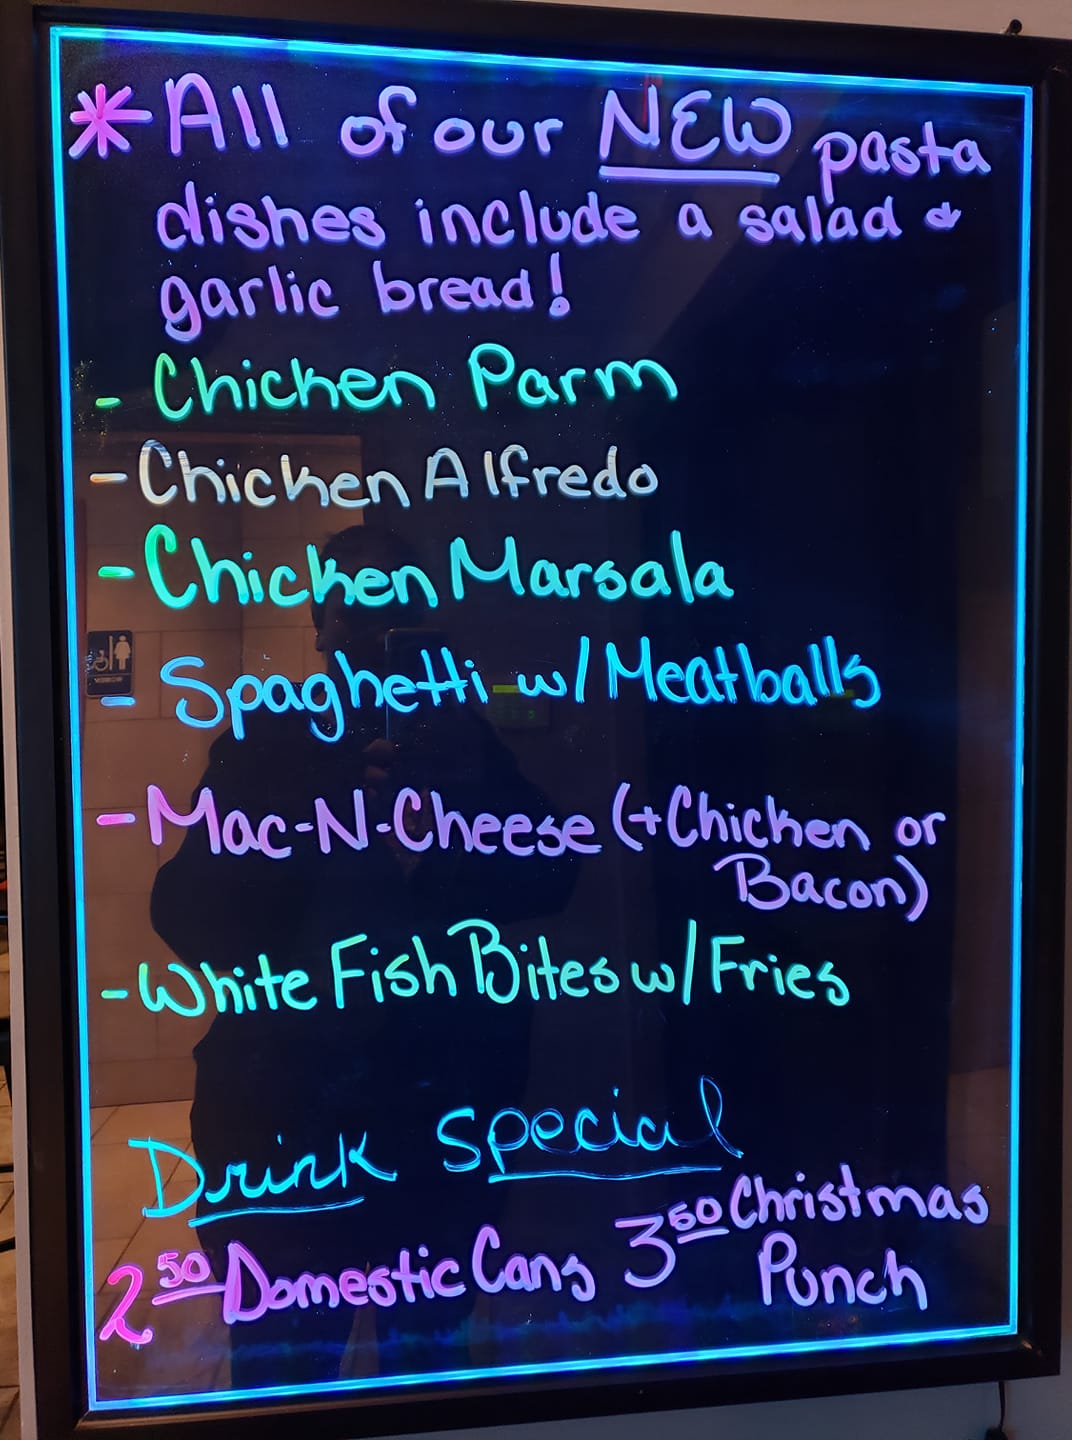 * All of our NEW pasta
dishes include a salad &
garlic bread!
- Chicken Parm
- Chicken Alfredo
- Chicken Marsala
- Spaghetti w/ Meatballs
- Mac-N-Cheese (+Chicken or
Bacon)
- White Fish Bites w/ Fries
Drink Special
2.50 Domestic Cans 3.50 Christmas
Punch